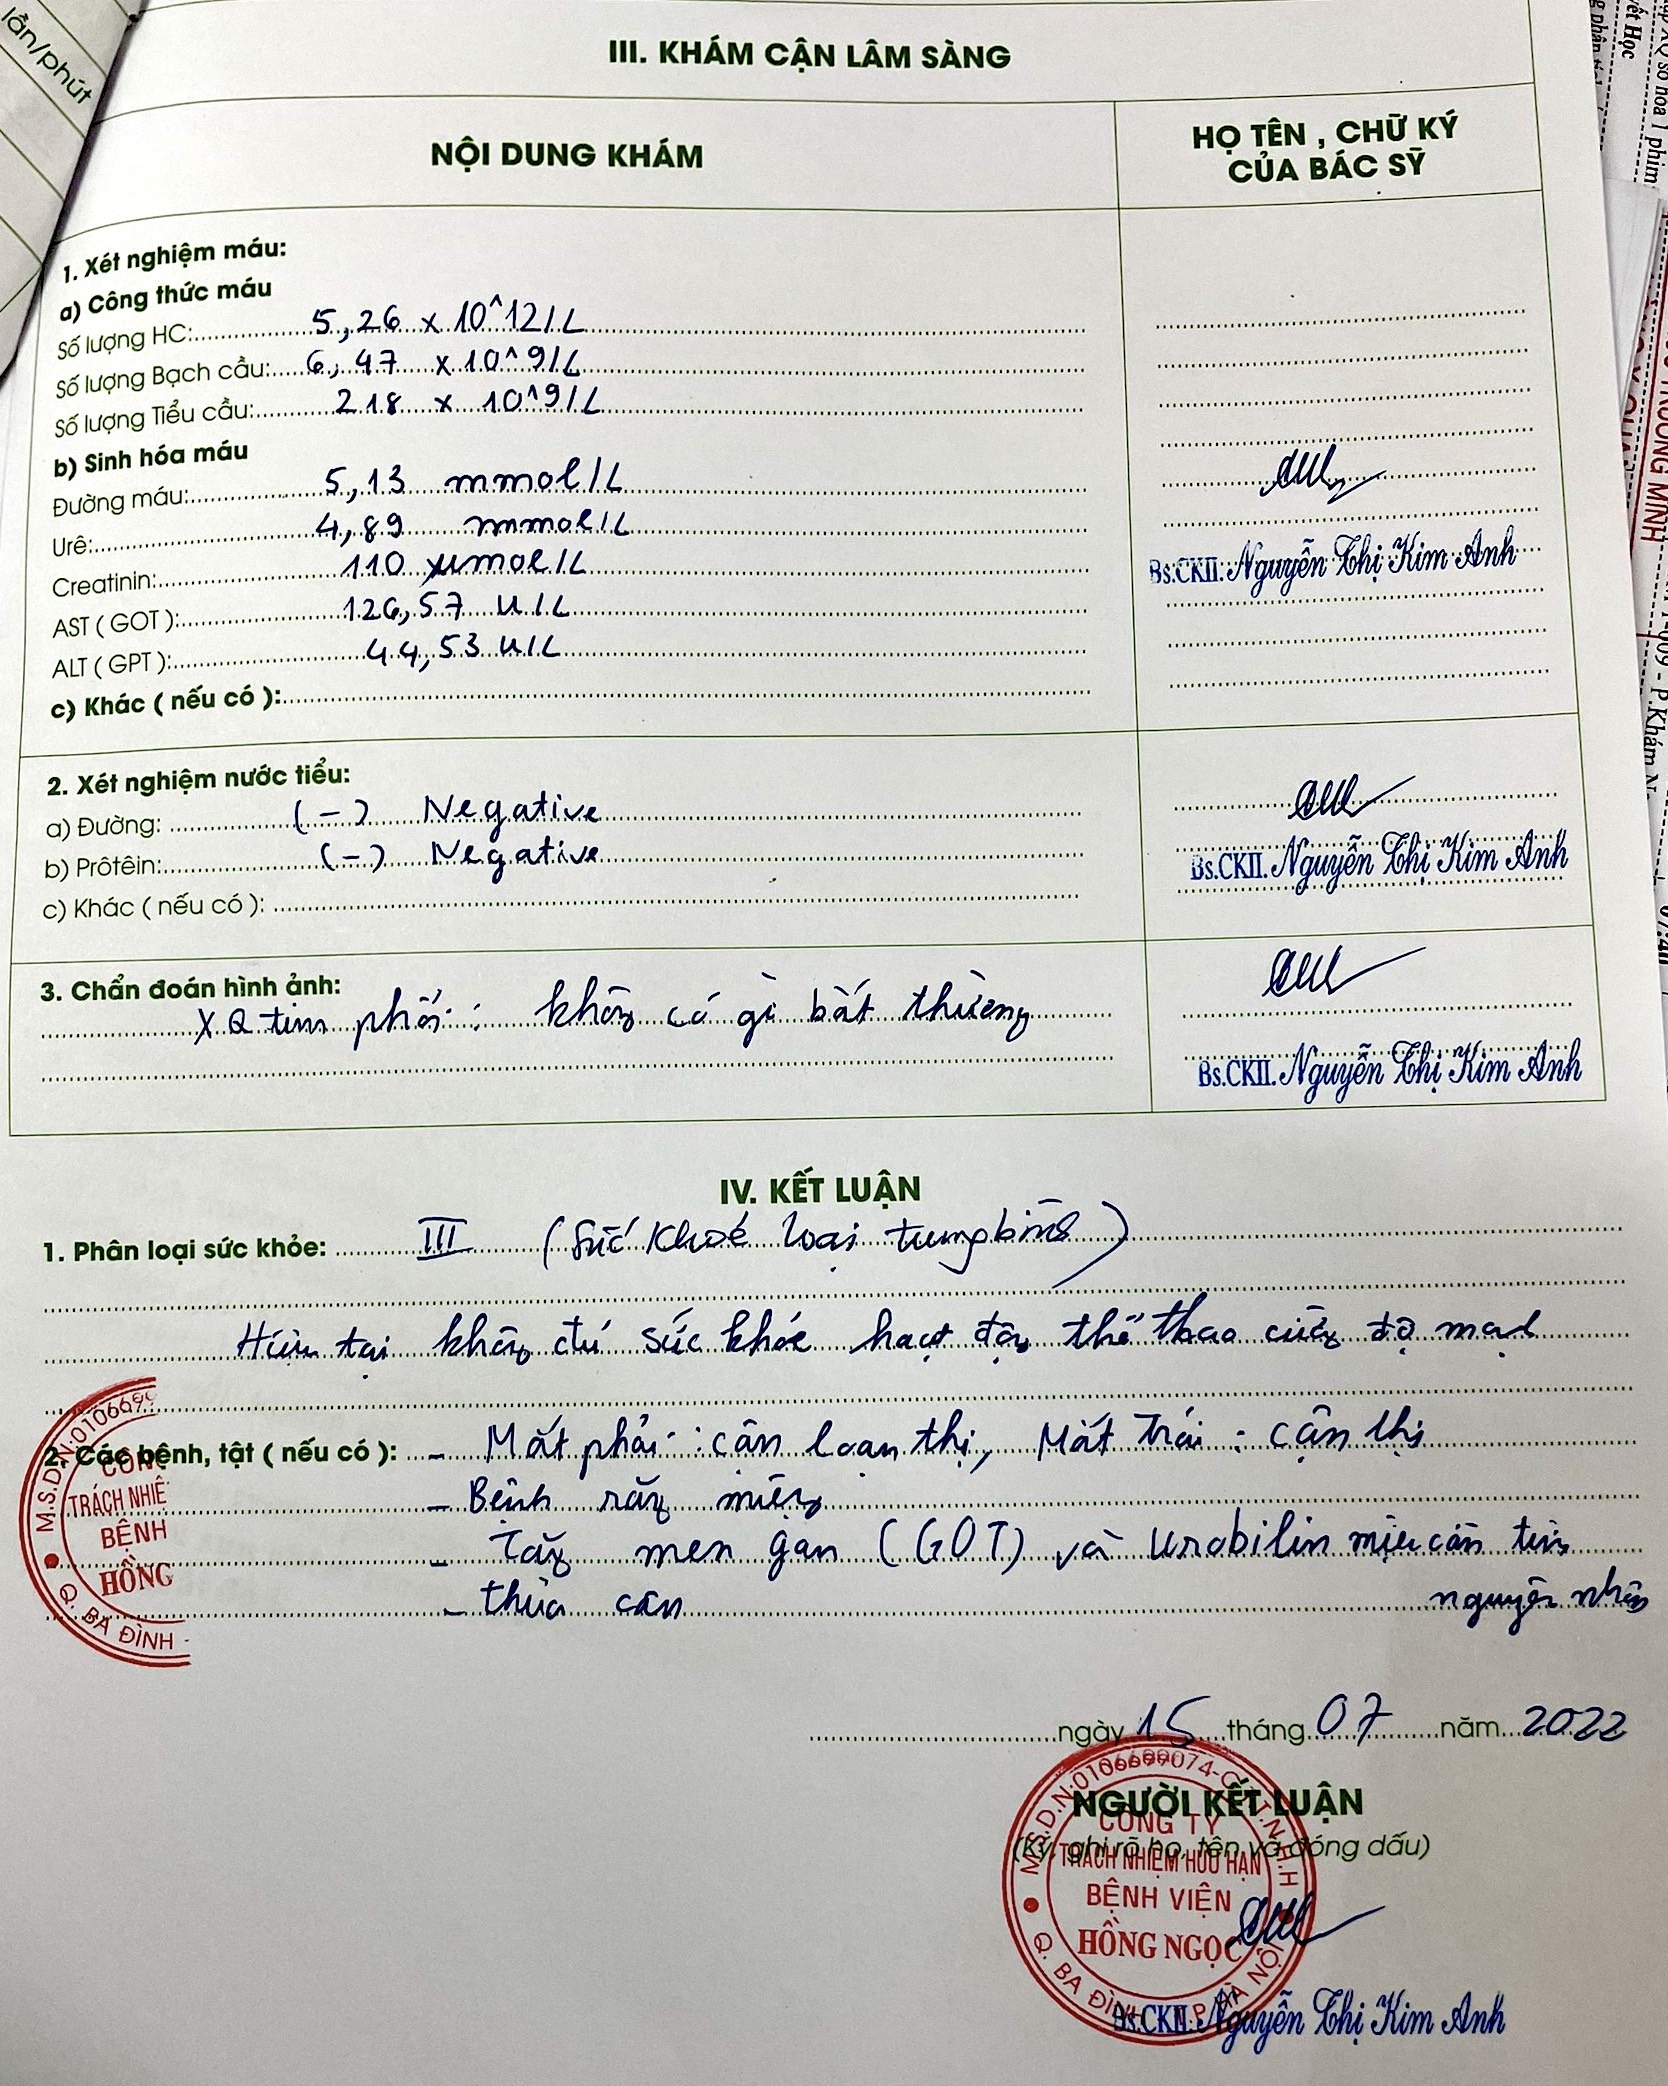 lần/phút
III. KHÁM CẬN LÂM SÀNG
NỘI DUNG KHÁM
HỌ TÊN , CHỮ KÝ
CỦA BÁC SỸ
1. Xét nghiệm máu:
a) Công thức máu
Số lượng HC: 5,26 x 10^12/L
Số lượng Bạch cầu: 6,47 x 10^9/L
Số lượng Tiểu cầu: 218 x 10^9/L
b) Sinh hóa máu
Đường máu: 5,13 mmol/L
Urê: 4,89 mmol/L
Creatinin: 110 µmol/L
AST ( GOT ): 126,57 U/L
ALT ( GPT ): 44,53 U/L
c) Khác ( nếu có ):
Bs.CKII. Nguyễn Thị Kim Anh
2. Xét nghiệm nước tiểu:
a) Đường: (-) Negative
b) Prôtêin: (-) Negative
c) Khác ( nếu có ):
Bs.CKII. Nguyễn Thị Kim Anh
3. Chẩn đoán hình ảnh:
XQ tim phổi : không có gì bất thường
Bs.CKII. Nguyễn Thị Kim Anh
IV. KẾT LUẬN
1. Phân loại sức khỏe: III (Sức khoẻ loại trung bình)
Hiện tại không đủ sức khỏe hoạt động thể thao cường độ mạnh
2. Các bệnh, tật ( nếu có ): - Mắt phải : cận loạn thị, Mắt trái : cận thị
- Bệnh răng miệng
- Tăng men gan (GOT) và Urobilin niệu cần tìm
nguyên nhân
- thừa cân
M.S.D.N:010669
TRÁCH NHIỆ
BỆNH
HỒNG
Q. BA ĐÌNH -
ngày 15 tháng 07 năm 2022
NGƯỜI KẾT LUẬN
(Ký, ghi rõ họ, tên và đóng dấu)
M.S.D.N:0106699074-C.T.T.N.H.H
CÔNG TY
TRÁCH NHIỆM HỮU HẠN
BỆNH VIỆN
HỒNG NGỌC
Q. BA ĐÌNH - T.P HÀ NỘI
Bs.CKII. Nguyễn Thị Kim Anh